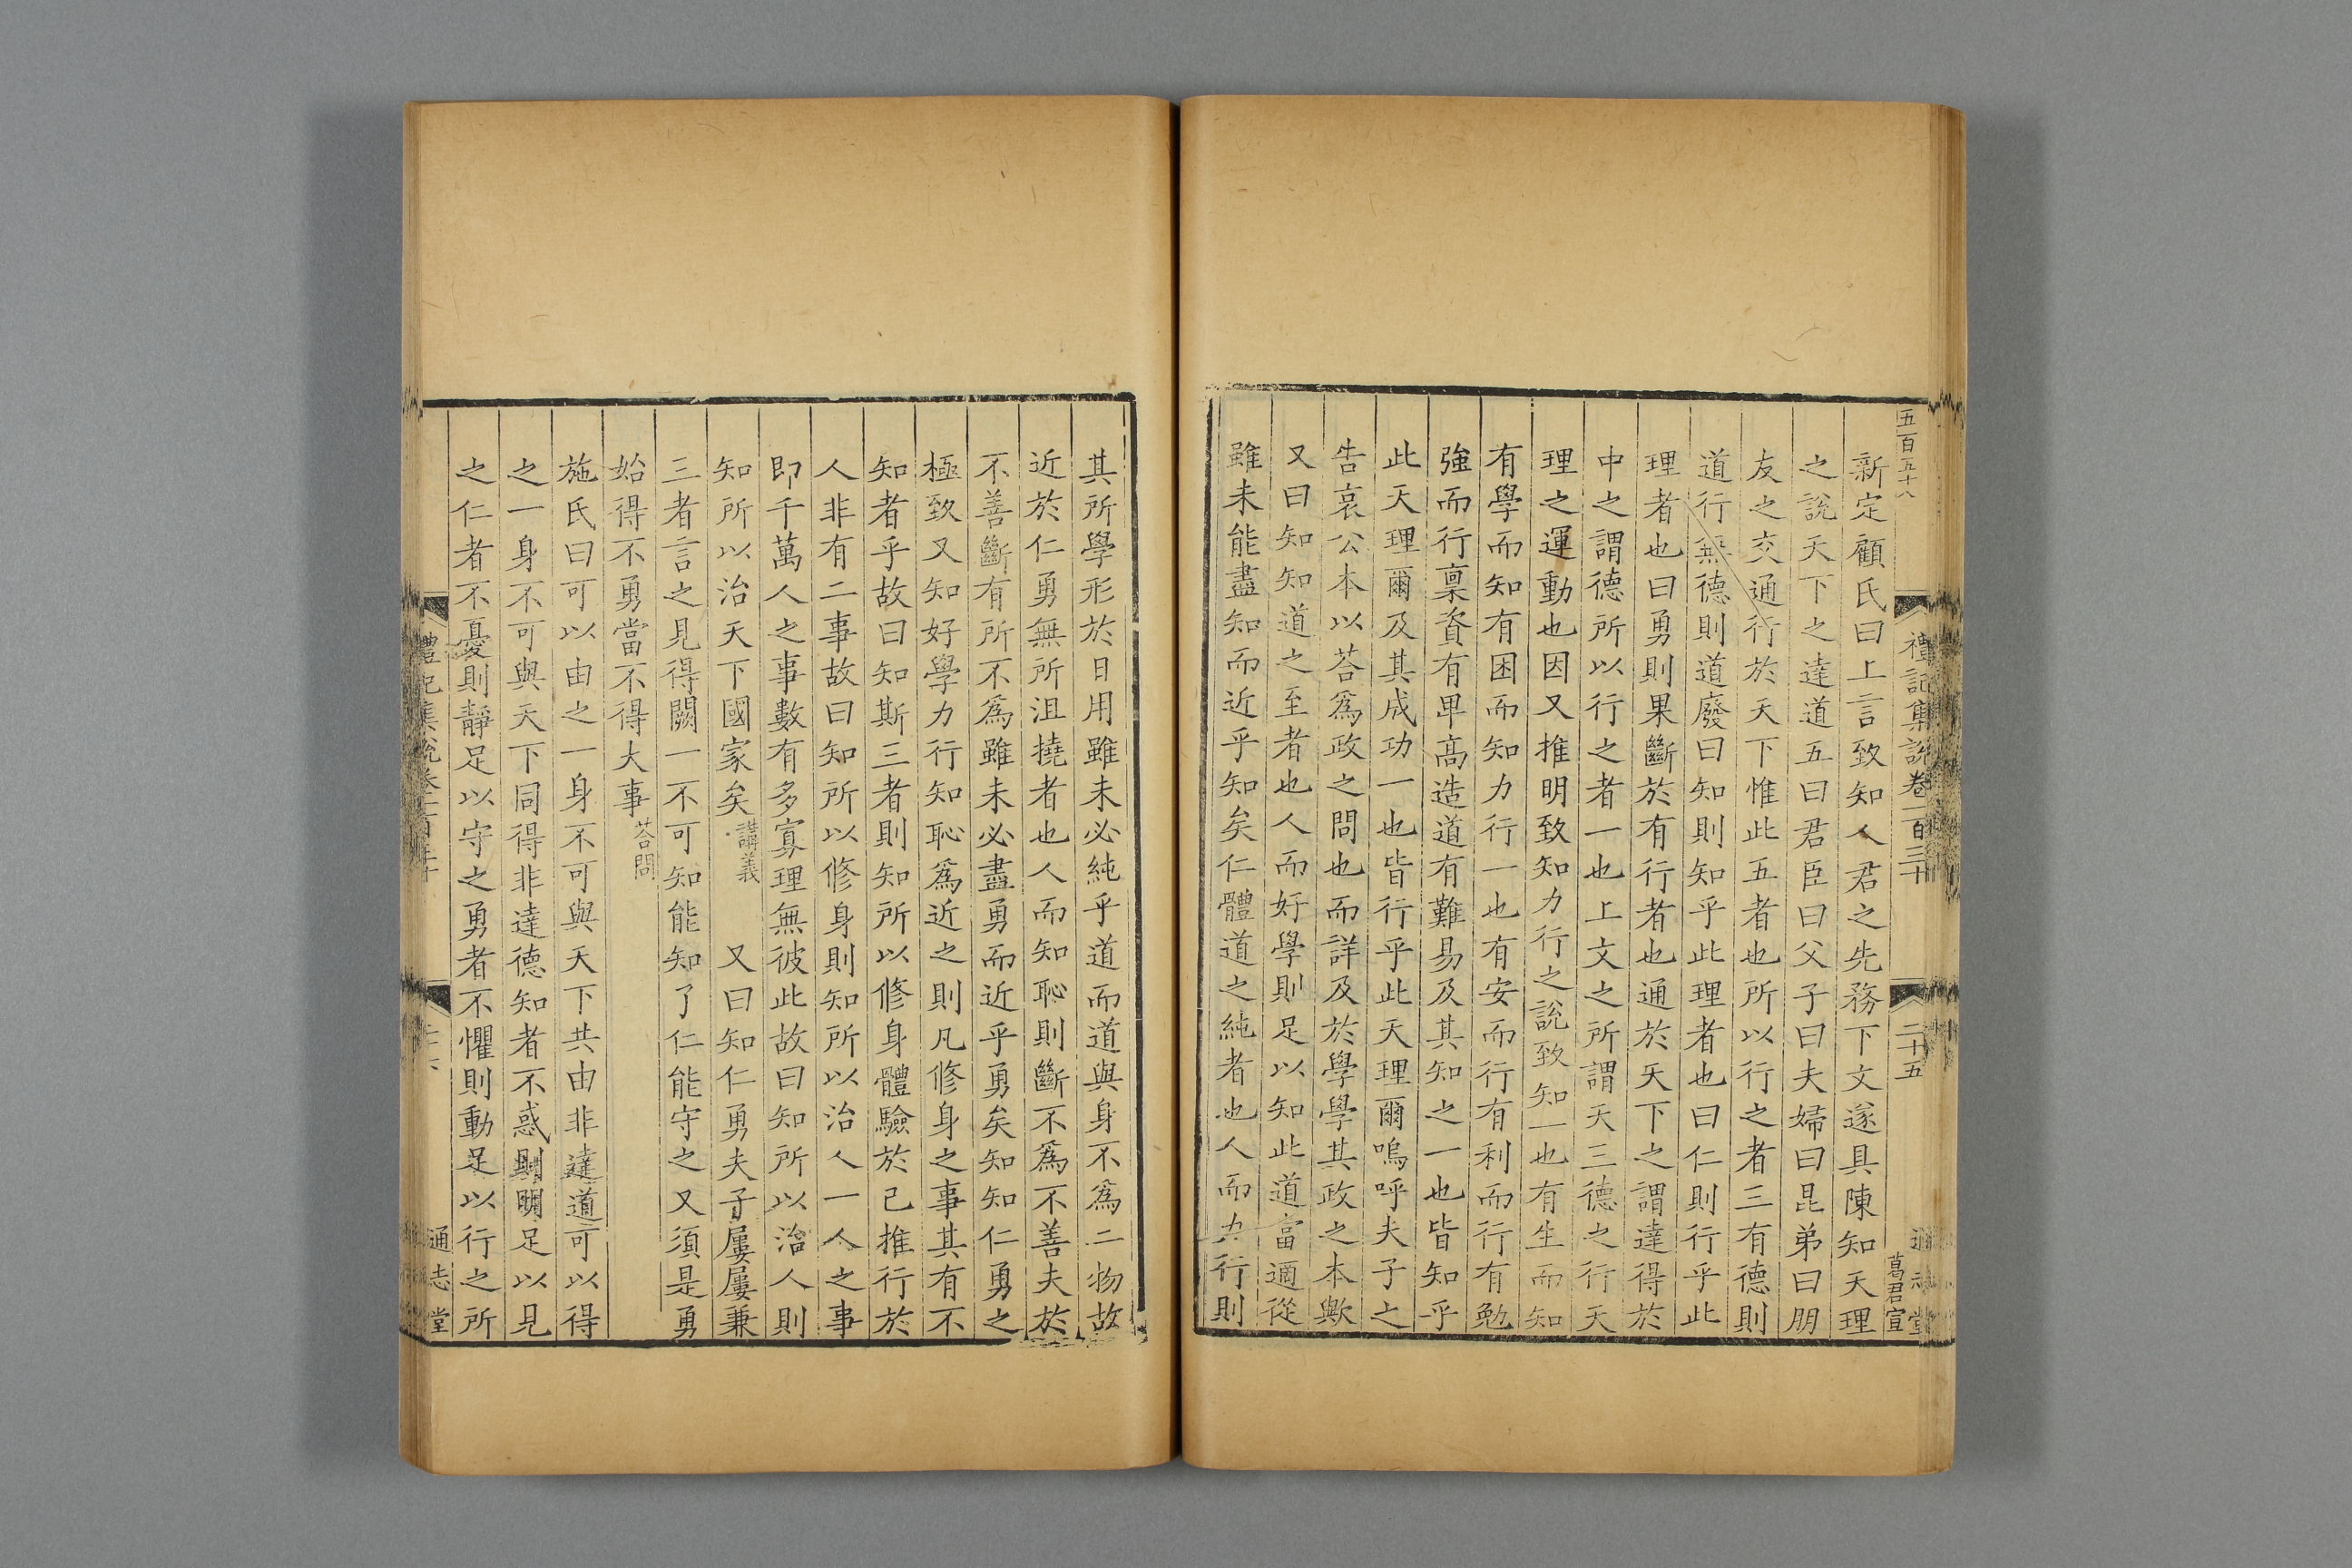 五百五十八
禮記集說卷一百三十
二十五
通志堂
葛君宣
新定顧氏曰上言致知人君之先務下文遂具陳知天理
之說天下之達道五曰君臣曰父子曰夫婦曰昆弟曰朋
友之交通行於天下惟此五者也所以行之者三有德則
道行無德則道廢曰知則知乎此理者也曰仁則行乎此
理者也曰勇則果斷於有行者也通於天下之謂達得於
中之謂德所以行之者一也上文之所謂天三德之行天
理之運動也因又推明致知力行之說致知一也有生而知
有學而知有困而知力行一也有安而行有利而行有勉
強而行稟資有卑高造道有難易及其知之一也皆知乎
此天理爾及其成功一也皆行乎此天理爾嗚呼夫子之
告哀公本以荅爲政之問也而詳及於學學其政之本歟
又曰知知道之至者也人而好學則足以知此道富適從
雖未能盡知而近乎知矣仁體道之純者也人而力行則
其所學形於日用雖未必純乎道而道與身不爲二物故
近於仁勇無所沮撓者也人而知恥則斷不爲不善夫於
不善斷有所不爲雖未必盡勇而近乎勇矣知知仁勇之
極致又知好學力行知恥爲近之則凡修身之事其有不
知者乎故曰知斯三者則知所以修身體驗於己推行於
人非有二事故曰知所以修身則知所以治人一人之事
即千萬人之事數有多寡理無彼此故曰知所以治人則
知所以治天下國家矣講義 又曰知仁勇夫子屢屢兼
三者言之見得闕一不可知能知了仁能守之又須是勇
始得不勇當不得大事荅問
施氏曰可以由之一身不可與天下共由非達道可以得
之一身不可與天下同得非達德知者不惑則明足以見
之仁者不憂則靜足以守之勇者不懼則動足以行之所
通志堂